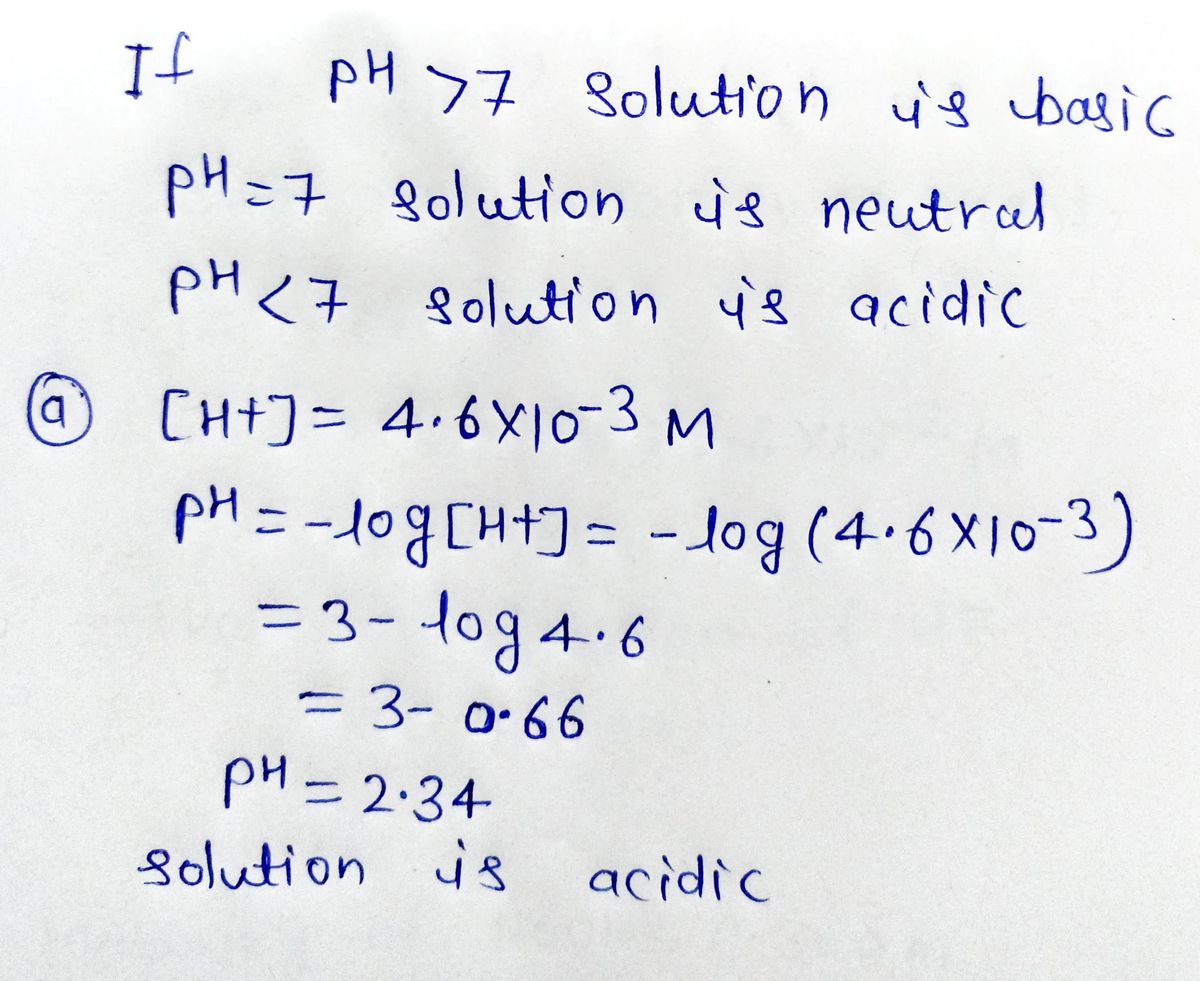 If pH >7 solution is basic
pH =7 solution is neutral
pH <7 solution is acidic
ⓐ [H+] = 4.6X10-3 M
pH = -log[H+] = -log (4.6X10-3)
= 3- log 4.6
= 3- 0.66
pH = 2.34
solution is acidic